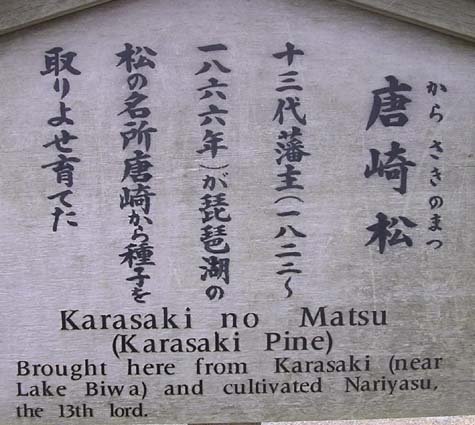 からさきのまつ
唐崎松
十三代藩主(一八二二〜
一八六六年)が琵琶湖の
松の名所唐崎から種子を
取りよせ育てた
Karasaki no Matsu
(Karasaki Pine)
Brought here from Karasaki (near
Lake Biwa) and cultivated Nariyasu,
the 13th lord.